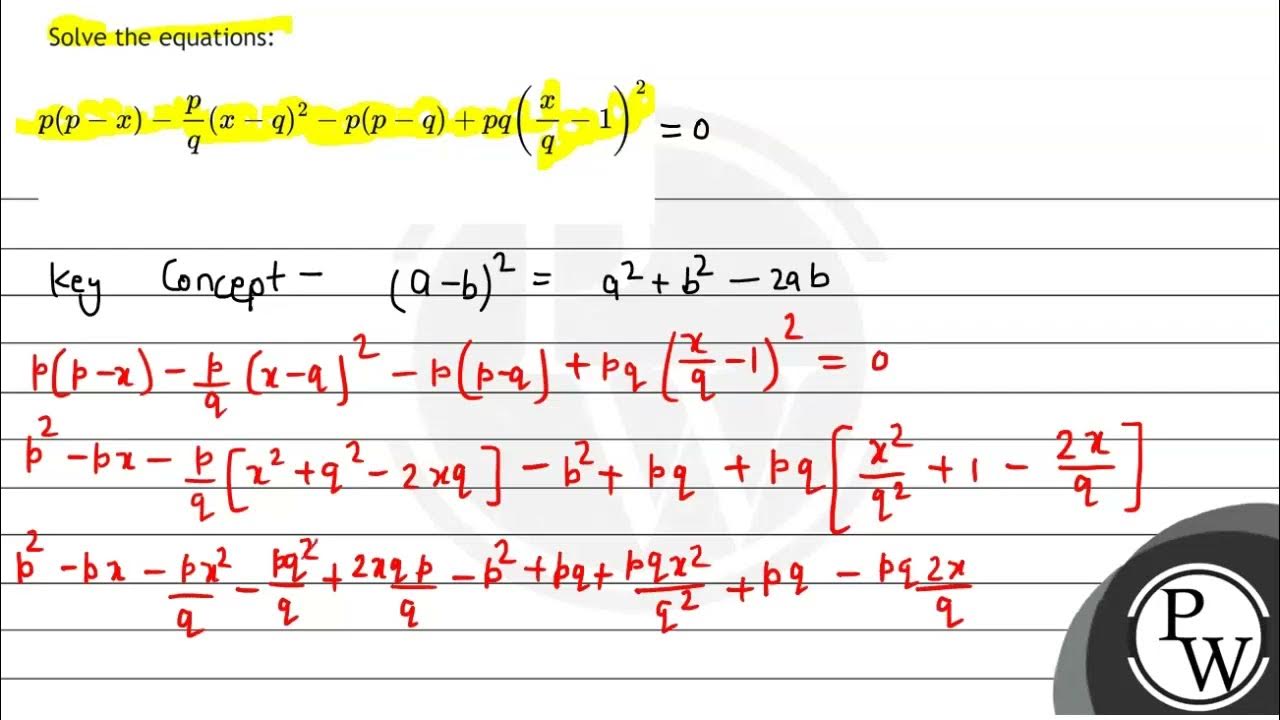 Solve the equations:
p(p − x) − p/q (x − q)² − p(p − q) + pq(x/q − 1)² = 0
Key Concept − (a − b)² = a² + b² − 2ab
p(p − x) − p/q (x − q)² − p(p − q) + pq (x/q − 1)² = 0
p² − px − p/q [x² + q² − 2xq] − p² + pq + pq [x²/q² + 1 − 2x/q]
p² − px − px²/q − pq²/q + 2xqp/q − p² + pq + pqx²/q² + pq − pq 2x/q
P
W